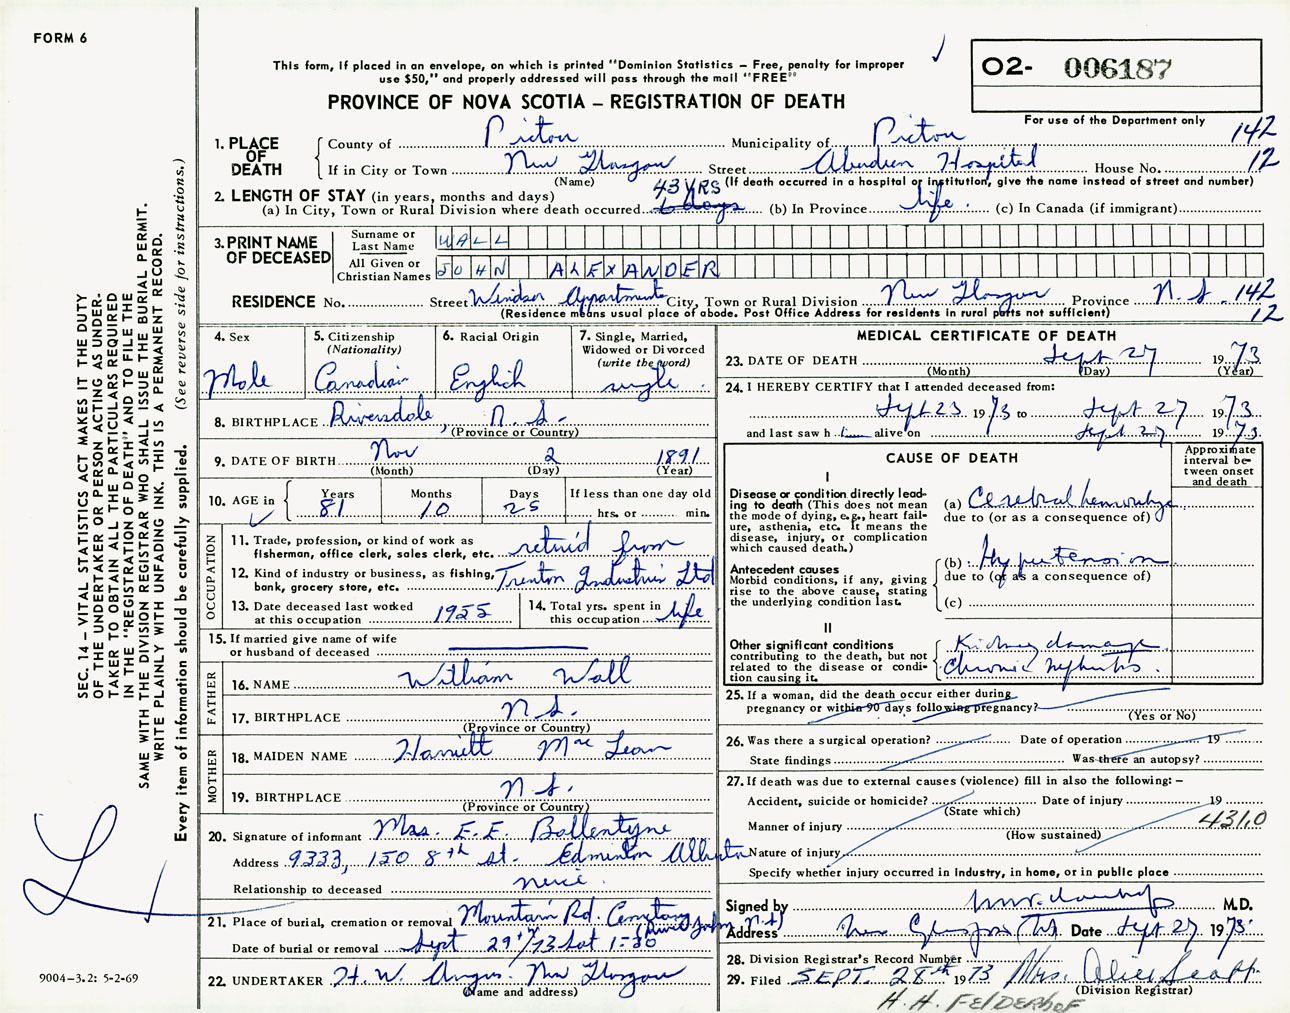 FORM 6
This form, if placed in an envelope, on which is printed "Dominion Statistics – Free, penalty for improper
use $50," and properly addressed will pass through the mail "FREE"
PROVINCE OF NOVA SCOTIA – REGISTRATION OF DEATH
O2- 006187
For use of the Department only
1. PLACE OF DEATH
County of Pictou Municipality of Pictou 142
If in City or Town New Glasgow Street Aberdeen Hospital House No. 12
(Name) (If death occurred in a hospital or institution, give the name instead of street and number)
2. LENGTH OF STAY (in years, months and days) 43 YRS
(a) In City, Town or Rural Division where death occurred 6 days (b) In Province life. (c) In Canada (if immigrant)
3. PRINT NAME OF DECEASED
Surname or Last Name WALL
All Given or Christian Names JOHN ALEXANDER
RESIDENCE No. Street Windsor Appartments City, Town or Rural Division New Glasgow Province N.S. 142
(Residence means usual place of abode. Post Office Address for residents in rural parts not sufficient) 12
4. Sex
Male
5. Citizenship
(Nationality)
Canadian
6. Racial Origin
English
7. Single, Married,
Widowed or Divorced
(write the word)
single.
8. BIRTHPLACE Riversdale, N.S.
(Province or Country)
9. DATE OF BIRTH Nov 2 1891
(Month) (Day) (Year)
10. AGE in Years 81 Months 10 Days 25 If less than one day old
hrs. or min.
OCCUPATION
11. Trade, profession, or kind of work as
fisherman, office clerk, sales clerk, etc. retired from
12. Kind of industry or business, as fishing,
bank, grocery store, etc. Trenton Industries Ltd
13. Date deceased last worked
at this occupation 1955
14. Total yrs. spent in
this occupation life
15. If married give name of wife
or husband of deceased
FATHER
16. NAME William Wall
17. BIRTHPLACE N.S.
(Province or Country)
MOTHER
18. MAIDEN NAME Harriett MacLean
19. BIRTHPLACE N.S.
(Province or Country)
20. Signature of informant Mrs. E.E. Ballentyne
Address 9333, 150 8th st. Edminton Alberta
Relationship to deceased neice.
21. Place of burial, cremation or removal Mountain Rd. Cemetary
(River John N.S)
Date of burial or removal Sept 29th/73 Sat 1-30
22. UNDERTAKER H.W. Angus. New Glasgow
(Name and address)
MEDICAL CERTIFICATE OF DEATH
23. DATE OF DEATH Sept 27 1973
(Month) (Day) (Year)
24. I HEREBY CERTIFY that I attended deceased from:
Sept 23 1973 to Sept 27 1973
and last saw him alive on Sept 27 1973.
CAUSE OF DEATH
Approximate
interval be-
tween onset
and death
I
Disease or condition directly lead-
ing to death (This does not
mean the mode of dying, e.g., heart fail-
ure, asthenia, etc. It means the
disease, injury, or complication
which caused death.)
(a) Cerebral hemorrhage
due to (or as a consequence of)
Antecedent causes
Morbid conditions, if any, giving
rise to the above cause, stating
the underlying condition last.
(b) Hypertension
due to (or as a consequence of)
(c)
II
Other significant conditions
contributing to the death, but not
related to the disease or condi-
tion causing it.
Kidney damage
Chronic nephritis.
25. If a woman, did the death occur either during
pregnancy or within 90 days following pregnancy?
(Yes or No)
26. Was there a surgical operation? Date of operation 19
State findings Was there an autopsy?
27. If death was due to external causes (violence) fill in also the following: –
Accident, suicide or homicide? Date of injury 19
(State which)
Manner of injury 431.0
(How sustained)
Nature of injury
Specify whether injury occurred in industry, in home, or in public place
Signed by M.D.
Address New Glasgow Date Sept 27 1973.
28. Division Registrar's Record Number
29. Filed SEPT. 28th 1973 Mrs. Alice Scott
(Division Registrar)
H.H. FELDERHOF
SEC. 14 – VITAL STATISTICS ACT MAKES IT THE DUTY
OF THE UNDERTAKER OR PERSON ACTING AS UNDER-
TAKER TO OBTAIN ALL THE PARTICULARS REQUIRED
IN THE "REGISTRATION OF DEATH" AND TO FILE THE
SAME WITH THE DIVISION REGISTRAR WHO SHALL ISSUE THE BURIAL PERMIT.
WRITE PLAINLY WITH UNFADING INK. THIS IS A PERMANENT RECORD.
Every item of information should be carefully supplied. (See reverse side for instructions.)
9004-3.2: 5-2-69